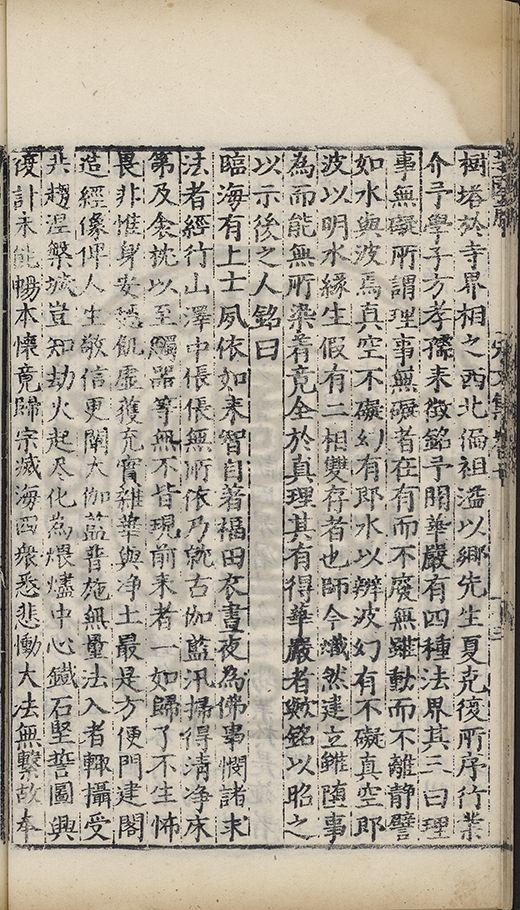 樹塔於寺界相之西北偏祖濫以鄉先生夏克復所序行業
介予學子方孝孺來徵銘予聞華嚴有四種法界其三曰理
事無礙所謂理事無礙者在有而不廢無雖動而不離静譬
如水與波焉真空不礙幻有即水以辨波幻有不礙真空即
波以明水緣生假有二相雙存者也師今熾然建立雖墮事
為而能無所染著竟全於真理其有得華嚴者歟銘以昭之
以示後之人銘曰
臨海有上士夙依如來智自著福田衣晝夜為佛事憫諸求
法者經行山澤中倀倀無所依乃就古伽藍汛掃得清净床
第及衾枕以至觸器等無不皆現前來者一如歸了不生怖
畏非惟身安隱飢虛獲充實雜華與净土最是方便門建閣
造經像俾人生敬信更闡大伽藍普施無量法入者輒攝受
共趨涅槃城豈知劫火起尽化為煨燼中心鐵石堅誓圖興
復計未能暢本懷竟歸宗滅海四衆悉悲慟大法無繫故本